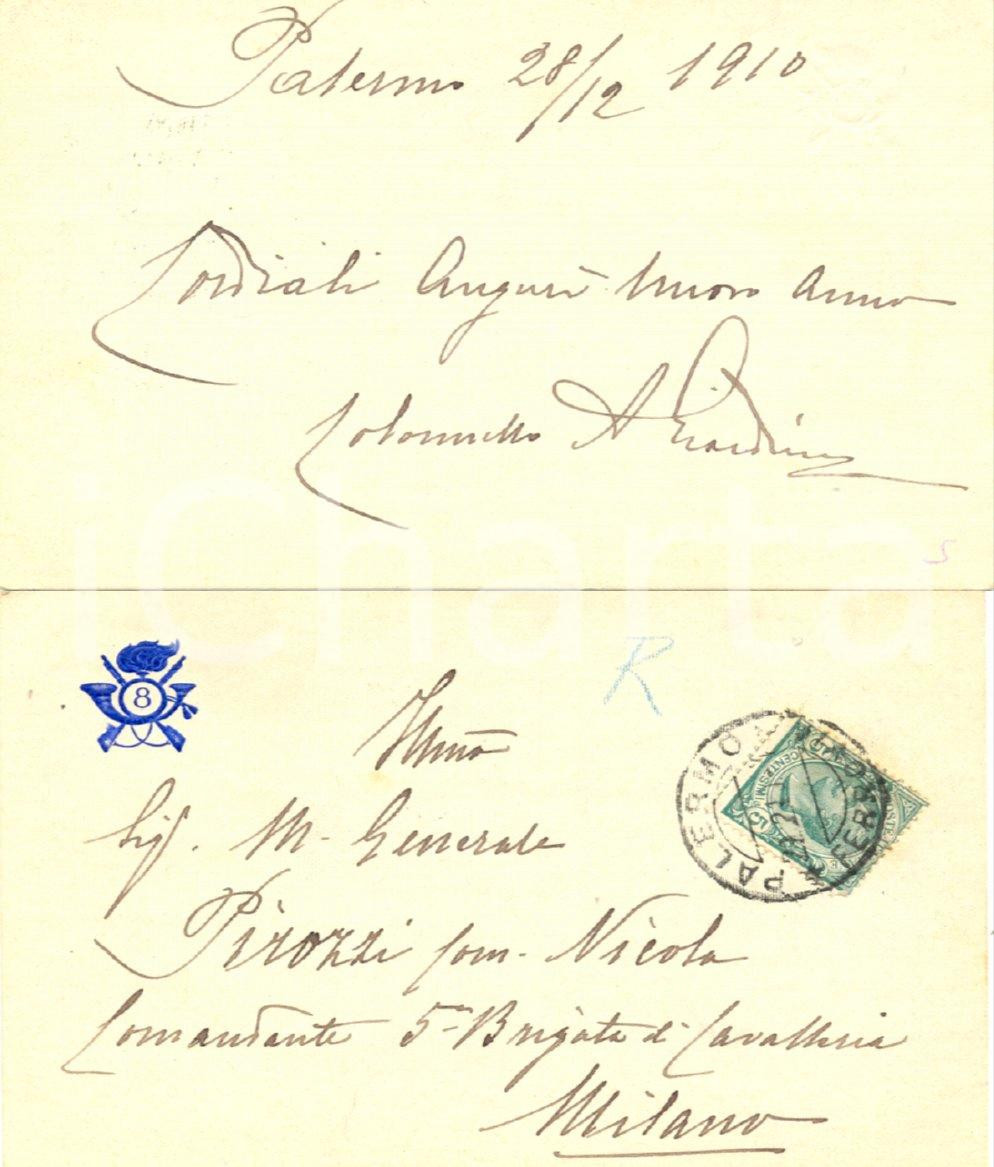 Palermo 28/12 1910
Cordiali Auguri Nuovo Anno
Colonnello A Giardina
iCharta
5
8
R
Illmo
Sig. M. Generale
Pirozzi Com. Nicola
Comandante 5a Brigata di Cavalleria
Milano
PALERMO
FERROVIA
CENTESIMI
POSTE